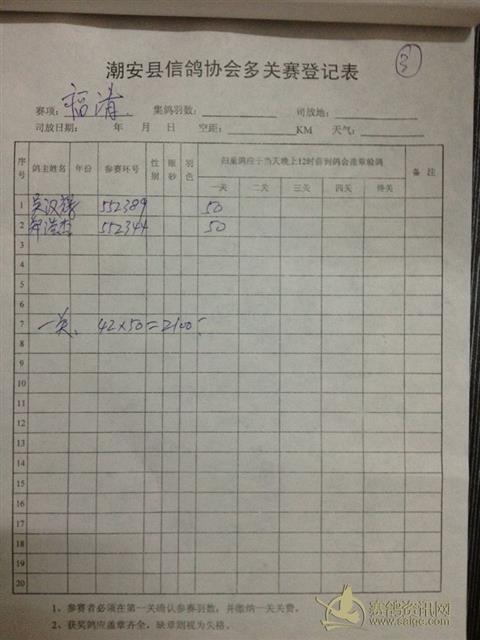 3
潮安县信鸽协会多关赛登记表
赛项: 福清 集鸽羽数: 司放地:
司放日期: 年 月 日 空距: KM 天气:
序号 鸽主姓名 年份 参赛环号 性别 眼砂 羽色 归巢鸽应于当天晚上12时前到鸽会盖章验鸽 备注
一关 二关 三关 四关 终关
1 吴汉 552389 50
2 郑浩杰 552344 50
3
4
5
6
7 一关、 42×50=2100
8
9
10
11
12
13
14
15
16
17
18
19
20
1、参赛者必须在第一关确认参赛羽数，并缴纳一关关费。
2、获奖鸽应盖章齐全，缺章则视为失格。
赛鸽资讯网
www.saigc.com